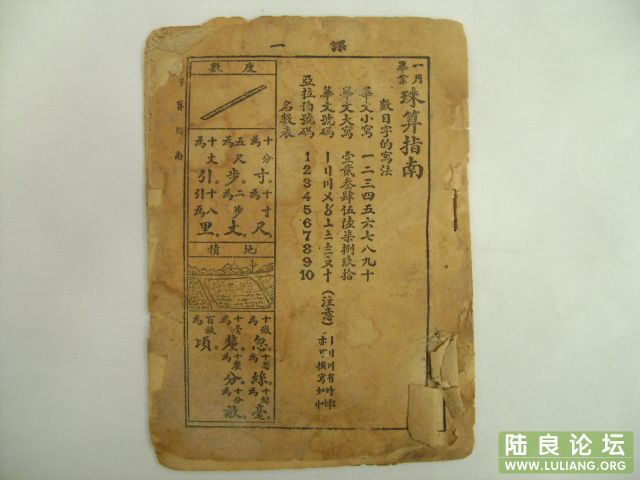 課一
一月畢業
珠算指南
數目字的寫法
華文小寫 一二三四五六七八九十
華文大寫 壹貳叁肆伍陸柒捌玖拾
華文號碼 〡〢〣〤〥〦〧〨〩十 (注意) 〡〢〣有時
亦可橫寫如
亞拉伯號碼 1 2 3 4 5 6 7 8 9 10
名數表
度數
十分為寸。十寸為尺。
五尺為步。二步為丈。
十丈為引。十八引為里。
地積
十微為忽。十忽為絲。十絲為毫。
十毫為釐。十釐為分。十分為畝。
百畝為頃。
算指南
陆良论坛
WWW.LULIANG.ORG